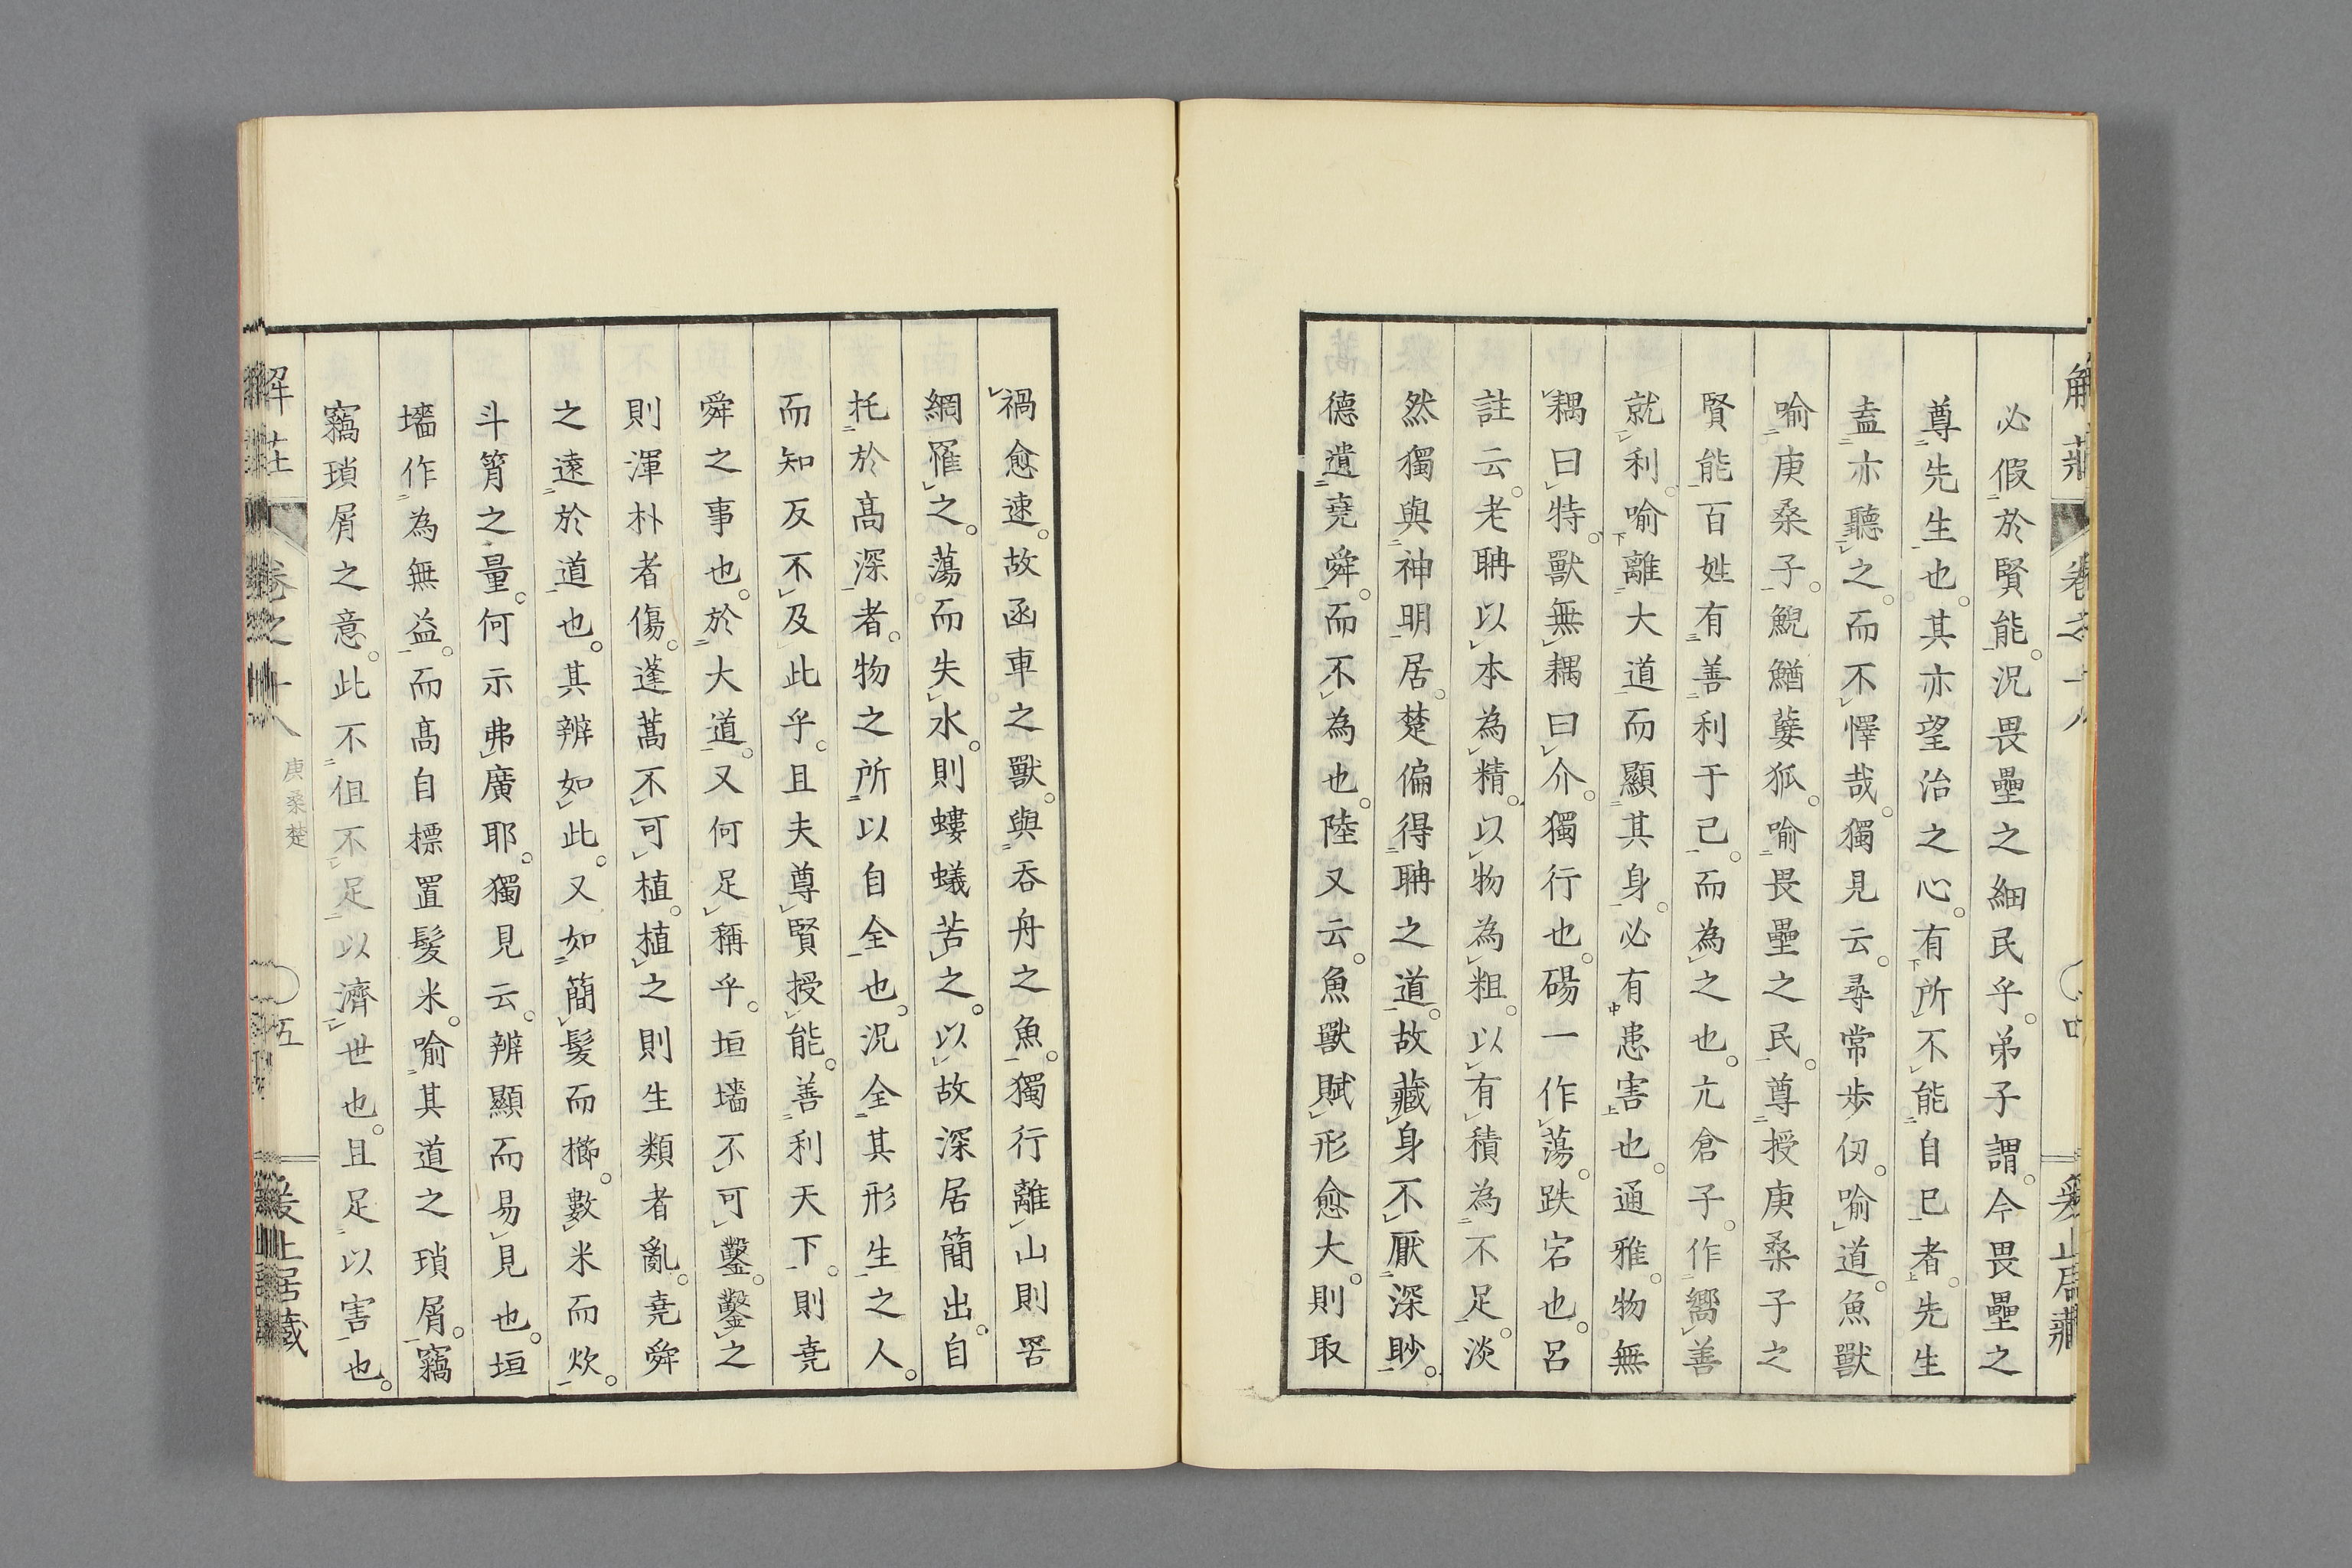 必假於賢能況畏壘之細民乎弟子謂今畏壘之
尊先生也其亦望治之心有所不能自已者先生
盍亦聽之而不懌哉獨見云尋常步仞喻道魚獸
喻庚桑子鯢鰌㜸狐喻畏壘之民尊授庚桑子之
賢能百姓有善利于己而為之也亢倉子作嚮善
就利喻離大道而顯其身必有患害也通雅物無
耦曰特獸無耦曰介獨行也碭一作蕩跌宕也呂
註云老聃以本為精以物為粗以有積為不足淡
然獨與神明居楚偏得聃之道故藏身不厭深眇
德遺堯舜而不為也陸又云魚獸賦形愈大則取
禍愈速故函車之獸與吞舟之魚獨行離山則罟
網罹之蕩而失水則螻蟻苦之以故深居簡出自
托於高深者物之所以自全也況全其形生之人
而知反不及此乎且夫尊賢授能善利天下則堯
舜之事也於大道又何足稱乎垣墻不可鑿鑿之
則渾朴者傷蓬蒿不可植植之則生類者亂堯舜
之遠於道也其辨如此又如簡髮而櫛數米而炊
斗筲之量何示弗廣耶獨見云辨顯而易見也垣
墻作為無益而高自標置髮米喻其道之瑣屑竊
竊瑣屑之意此不但不足以濟世也且足以害也
解莊
卷之十八
庚桑楚
五